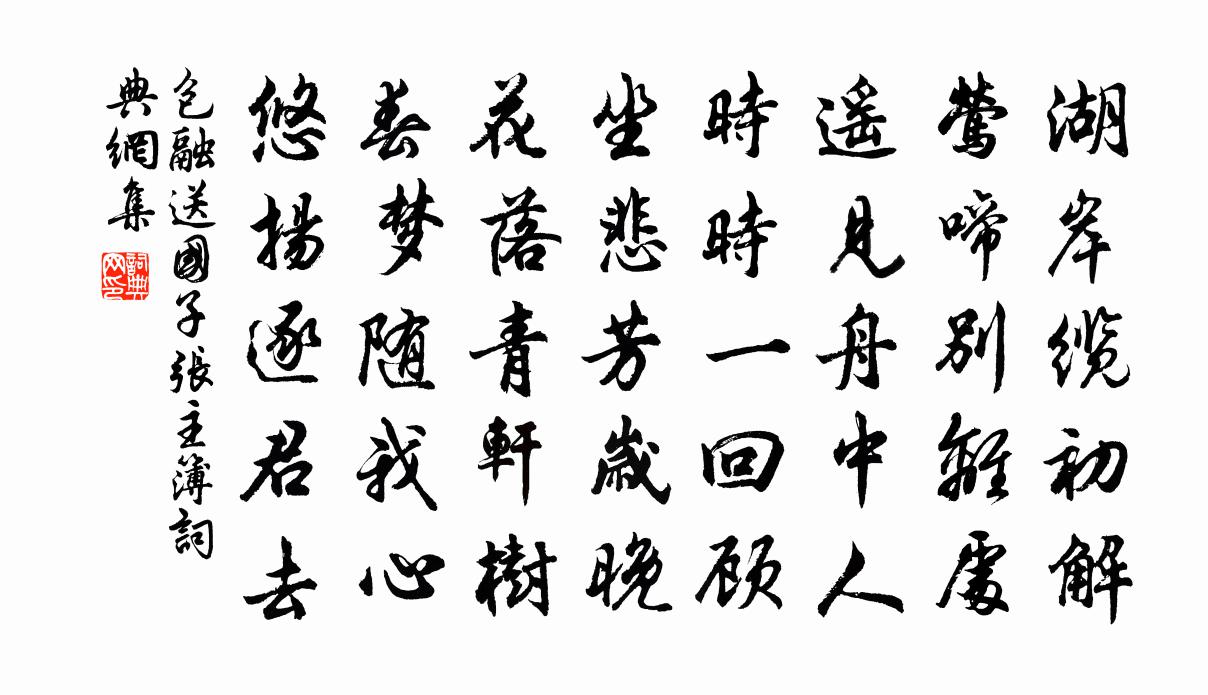 湖岸缆初解
莺啼别離處
遥見舟中人
時時一回顾
坐悲芳歲晚
花落青軒樹
春梦随我心
悠揚逐君去
包融送國子張主簿詞
典網集
詞典网印